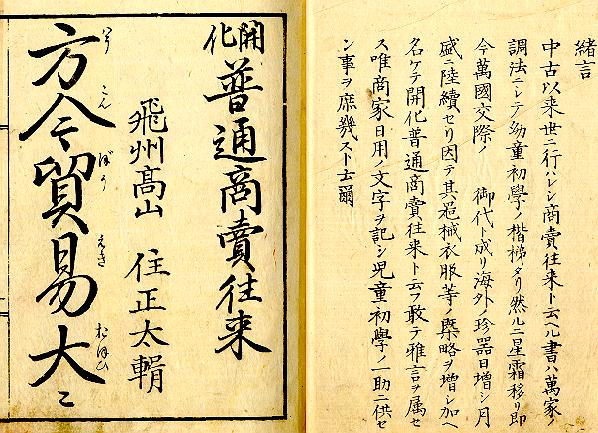 緒言
中古以来世ニ行ハレシ商賣往来ト云ヘル書ハ萬家ノ
調法ニシテ幼童初學ノ楷梯タリ然ルニ星霜移リ即
今萬國交際ノ 御代ト成リ海外ノ珍器日増シ月
盛ニ陸續セリ因テ其器械衣服等ノ槩略ヲ増シ加ヘ
名ケテ開化普通商賣往来ト云フ敢テ雅言ヲ属セ
ス唯商家日用ノ文字ヲ記シ児童初學ノ一助ニ供セ
ン事ヲ庶幾スト云爾
開化普通商賣往来
飛州髙山 住正太輯
方今貿易大ニ
はう こん ぼう えき おほひ